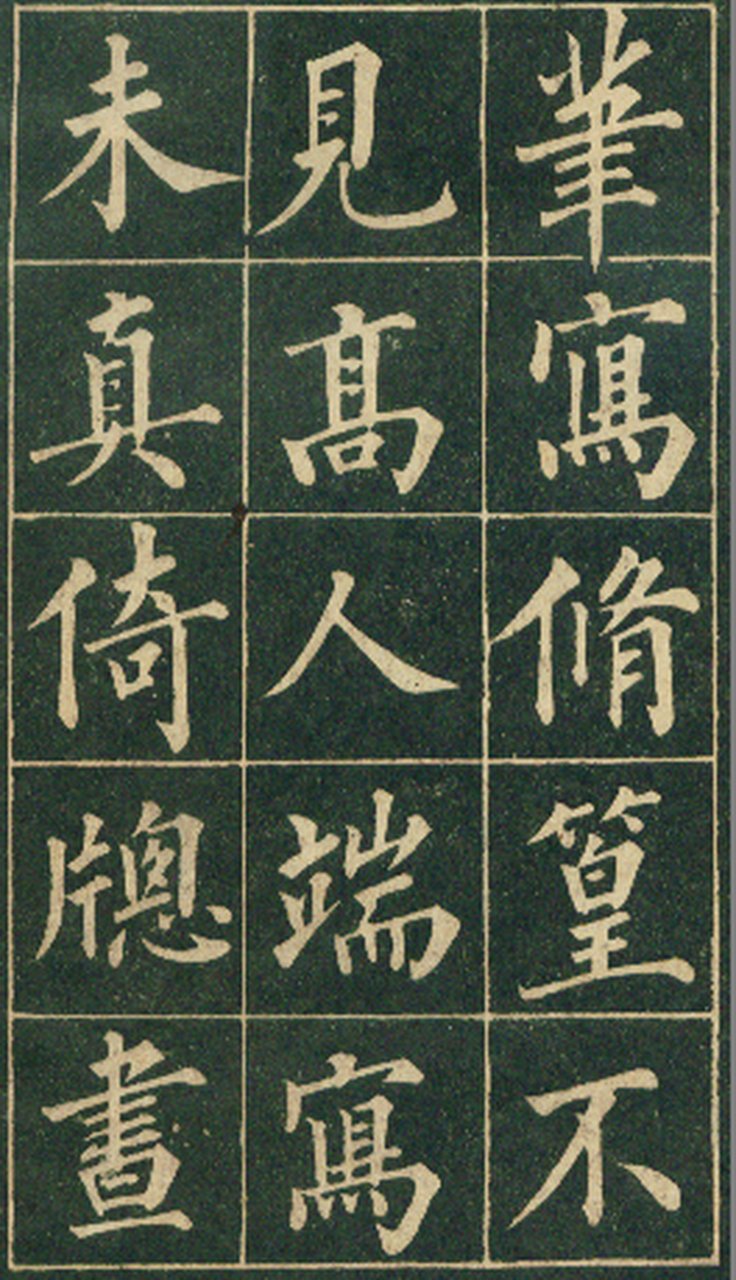 筆寫脩篁不
見髙人端寫
未真倚牕晝